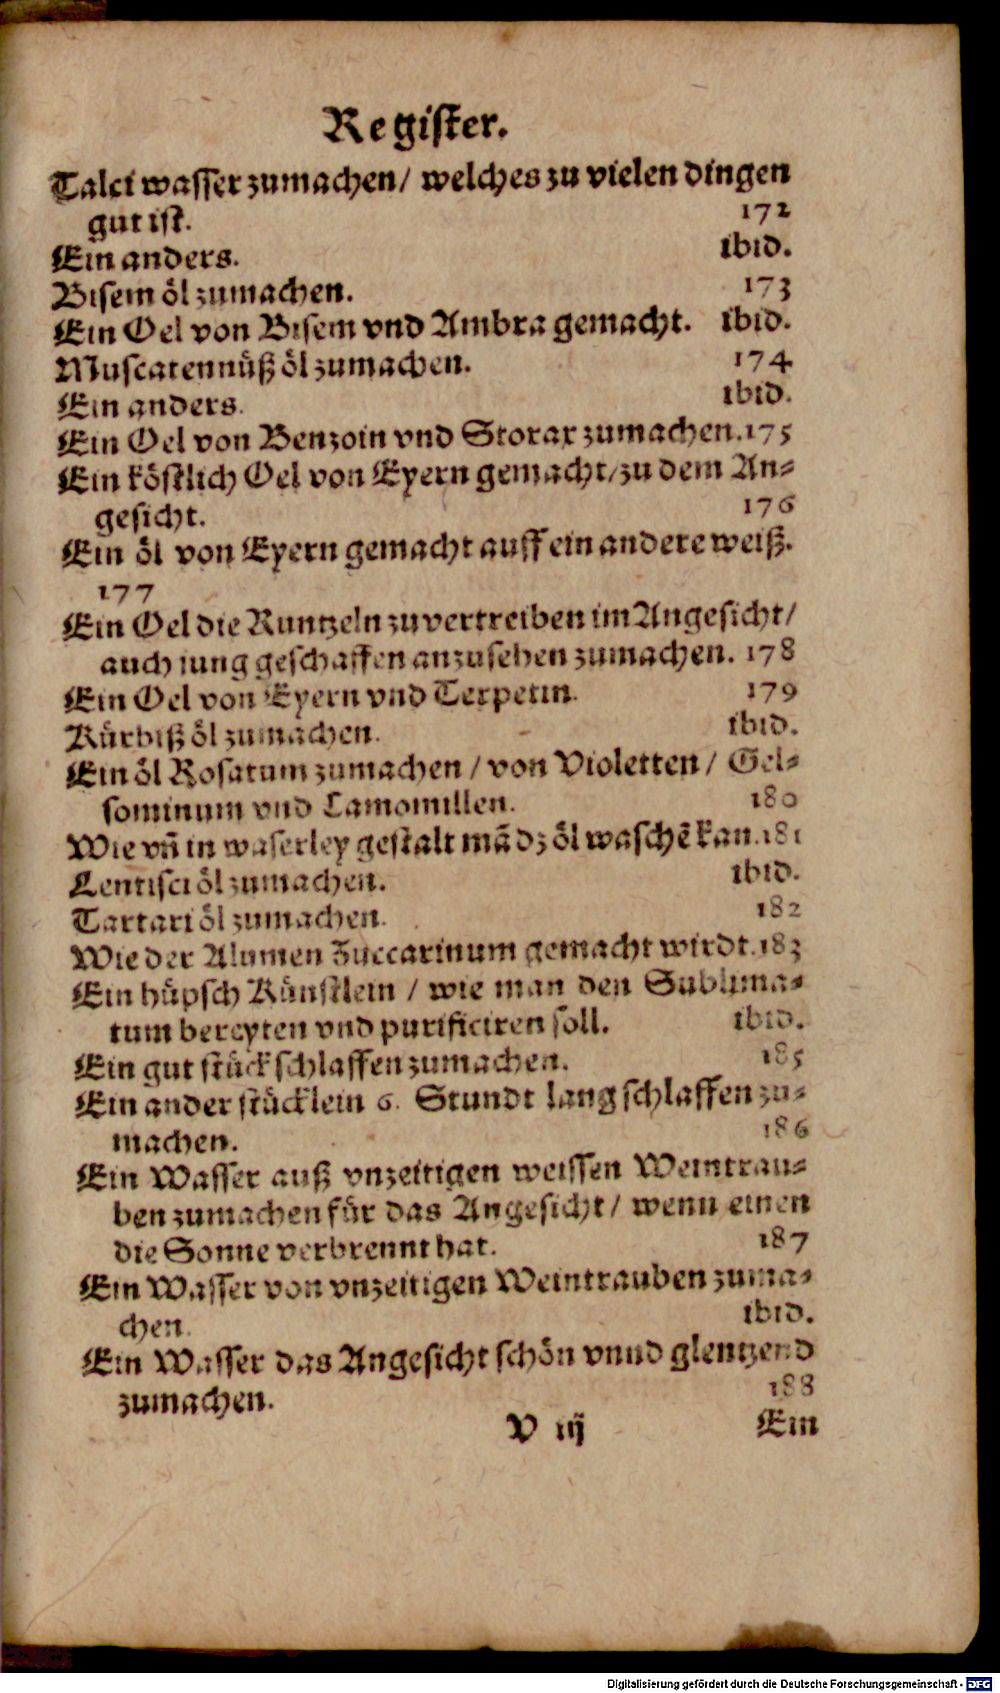 Register.
Talci wasser zumachen / welches zu vielen dingen
gut ist. 172
Ein anders. ibid.
Bisem öl zumachen. 173
Ein Oel von Bisem vnd Ambra gemacht. ibid.
Muscatennüß öl zumachen. 174
Ein anders. ibid.
Ein Oel von Benzoin vnd Storax zumachen. 175
Ein köstlich Oel von Eyern gemacht / zu dem An⸗
gesicht. 176
Ein öl von Eyern gemacht auff ein andere weiß.
177
Ein Oel die Runtzeln zuvertreiben im Angesicht /
auch jung geschaffen anzusehen zumachen. 178
Ein Oel von Eyern vnd Terpetin. 179
Kürbiß öl zumachen. ibid.
Ein öl Rosatum zumachen / von Violetten / Gel⸗
sominum vnd Camomillen. 180
Wie vñ in waserley gestalt mã dz öl waschẽ kan. 181
Lentisci öl zumachen. ibid.
Tartari öl zumachen. 182
Wie der Alumen Zuccarinum gemacht wirdt. 183
Ein hüpsch Künstlein / wie man den Sublima⸗
tum bereyten vnd purificiren soll. ibid.
Ein gut stück schlaffen zumachen. 185
Ein ander stücklein 6. Stundt lang schlaffen zu⸗
machen. 186
Ein Wasser auß vnzeitigen weissen Weintrau⸗
ben zumachen für das Angesicht / wenn einen
die Sonne verbrennt hat. 187
Ein Wasser von vnzeitigen Weintrauben zuma⸗
chen. ibid.
Ein Wasser das Angesicht schön vnnd glentzend
zumachen. 188
V iij Ein
Digitalisierung gefördert durch die Deutsche Forschungsgemeinschaft - DFG